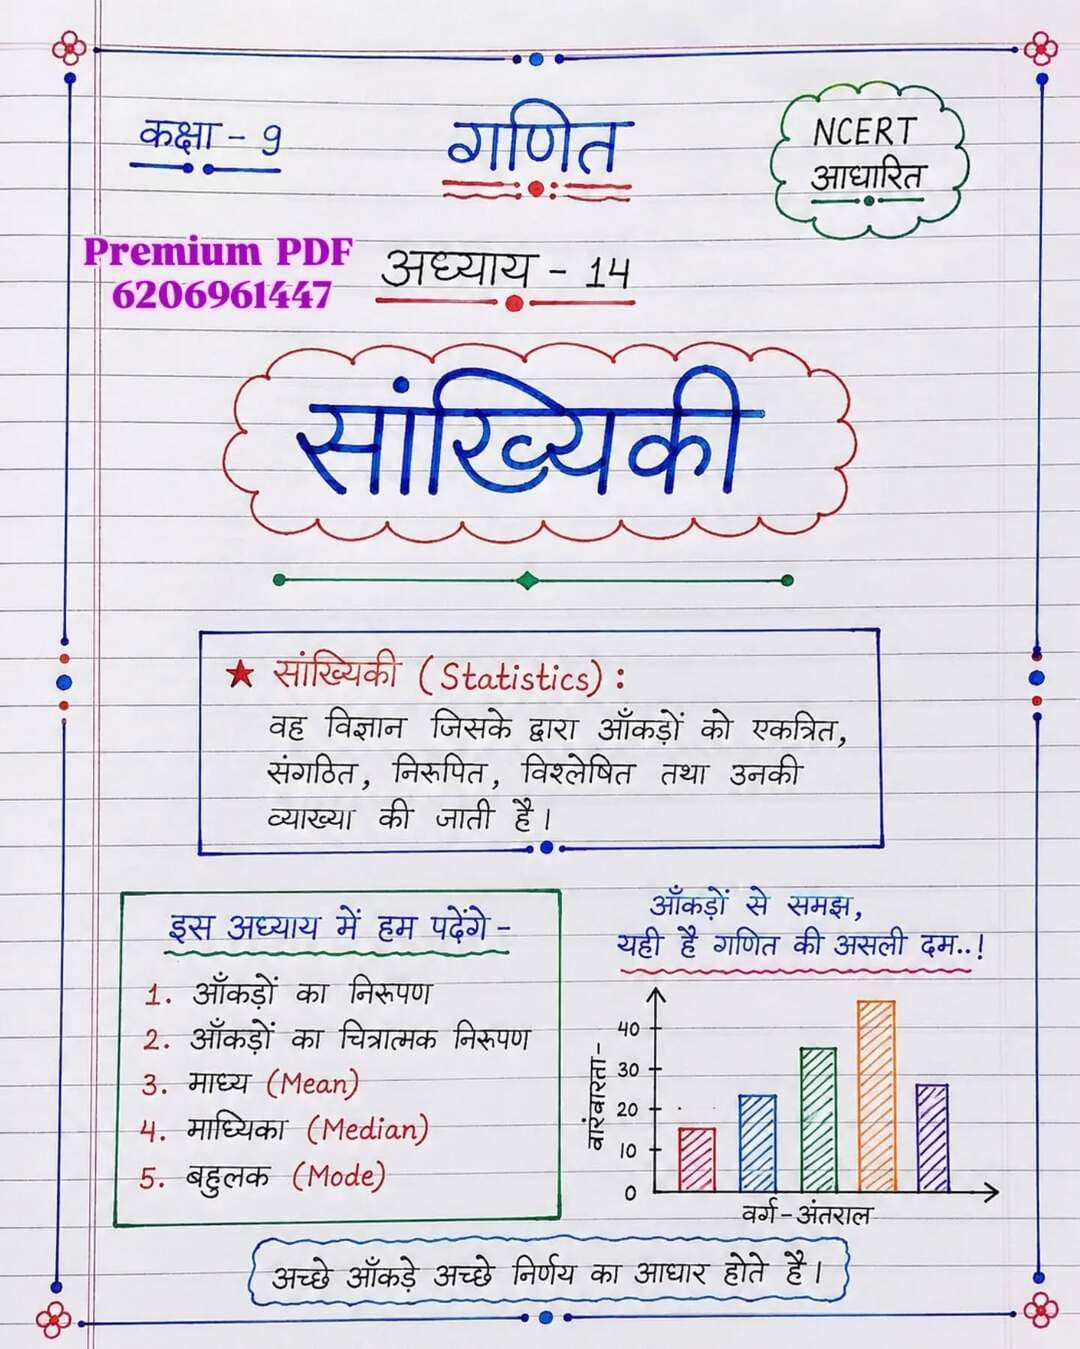 कक्षा - 9
गणित
NCERT
आधारित
Premium PDF
6206961447
अध्याय - 14
सांख्यिकी
★ सांख्यिकी (Statistics) :
वह विज्ञान जिसके द्वारा आँकड़ों को एकत्रित,
संगठित, निरूपित, विश्लेषित तथा उनकी
व्याख्या की जाती है।
इस अध्याय में हम पढ़ेंगे -
1. आँकड़ों का निरूपण
2. आँकड़ों का चित्रात्मक निरूपण
3. माध्य (Mean)
4. माध्यिका (Median)
5. बहुलक (Mode)
आँकड़ों से समझ,
यही है गणित की असली दम..!
बारंबारता-
40
30
20
10
0
वर्ग-अंतराल
अच्छे आँकड़े अच्छे निर्णय का आधार होते है।